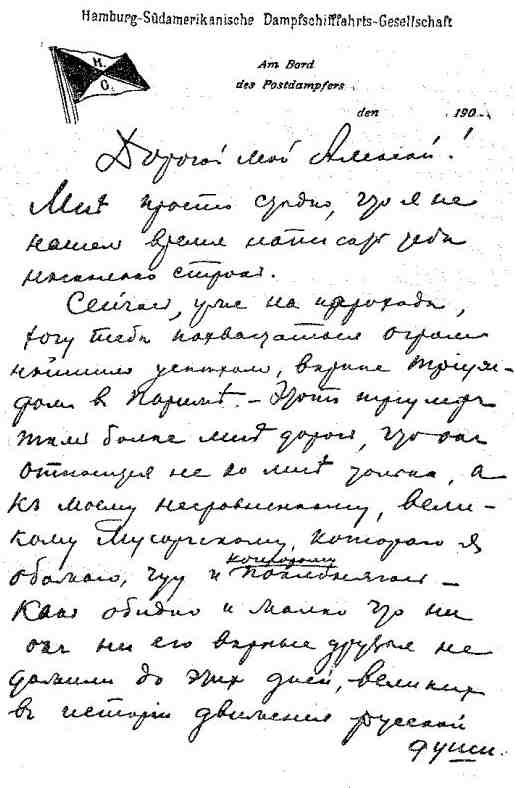 Hamburg-Südamerikanische Dampfschifffahrts-Gesellschaft
H.
G.
Am Bord
des Postdampfers
den 190
Дорогой мой Алексей!
Мнѣ просто стыдно, что я не
нашел время написать тебе
несколько строк.
Сейчас, уже на пароходе,
хочу тебе похвастаться огром
нейшим успехом, вернее триум-
фом в Париже. – Этот триумф
тем более мнѣ дорог, что он
относится не ко мнѣ только, а
къ моему несравненному, вели-
кому Мусоргскому, котораго я
обожаю, чту и которому
поклоняюсь –
Как обидно и жалко что ни
он ни его верные друзья не
дожили до этих дней, великих
в исторiи движенiя русской
души.